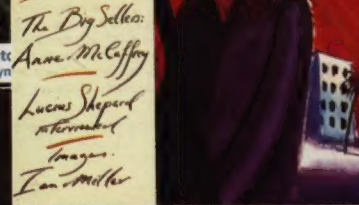 The Big Sellers:
Anne McCaffrey
Lucius Shepard
interviewed
Images.
Ian Miller